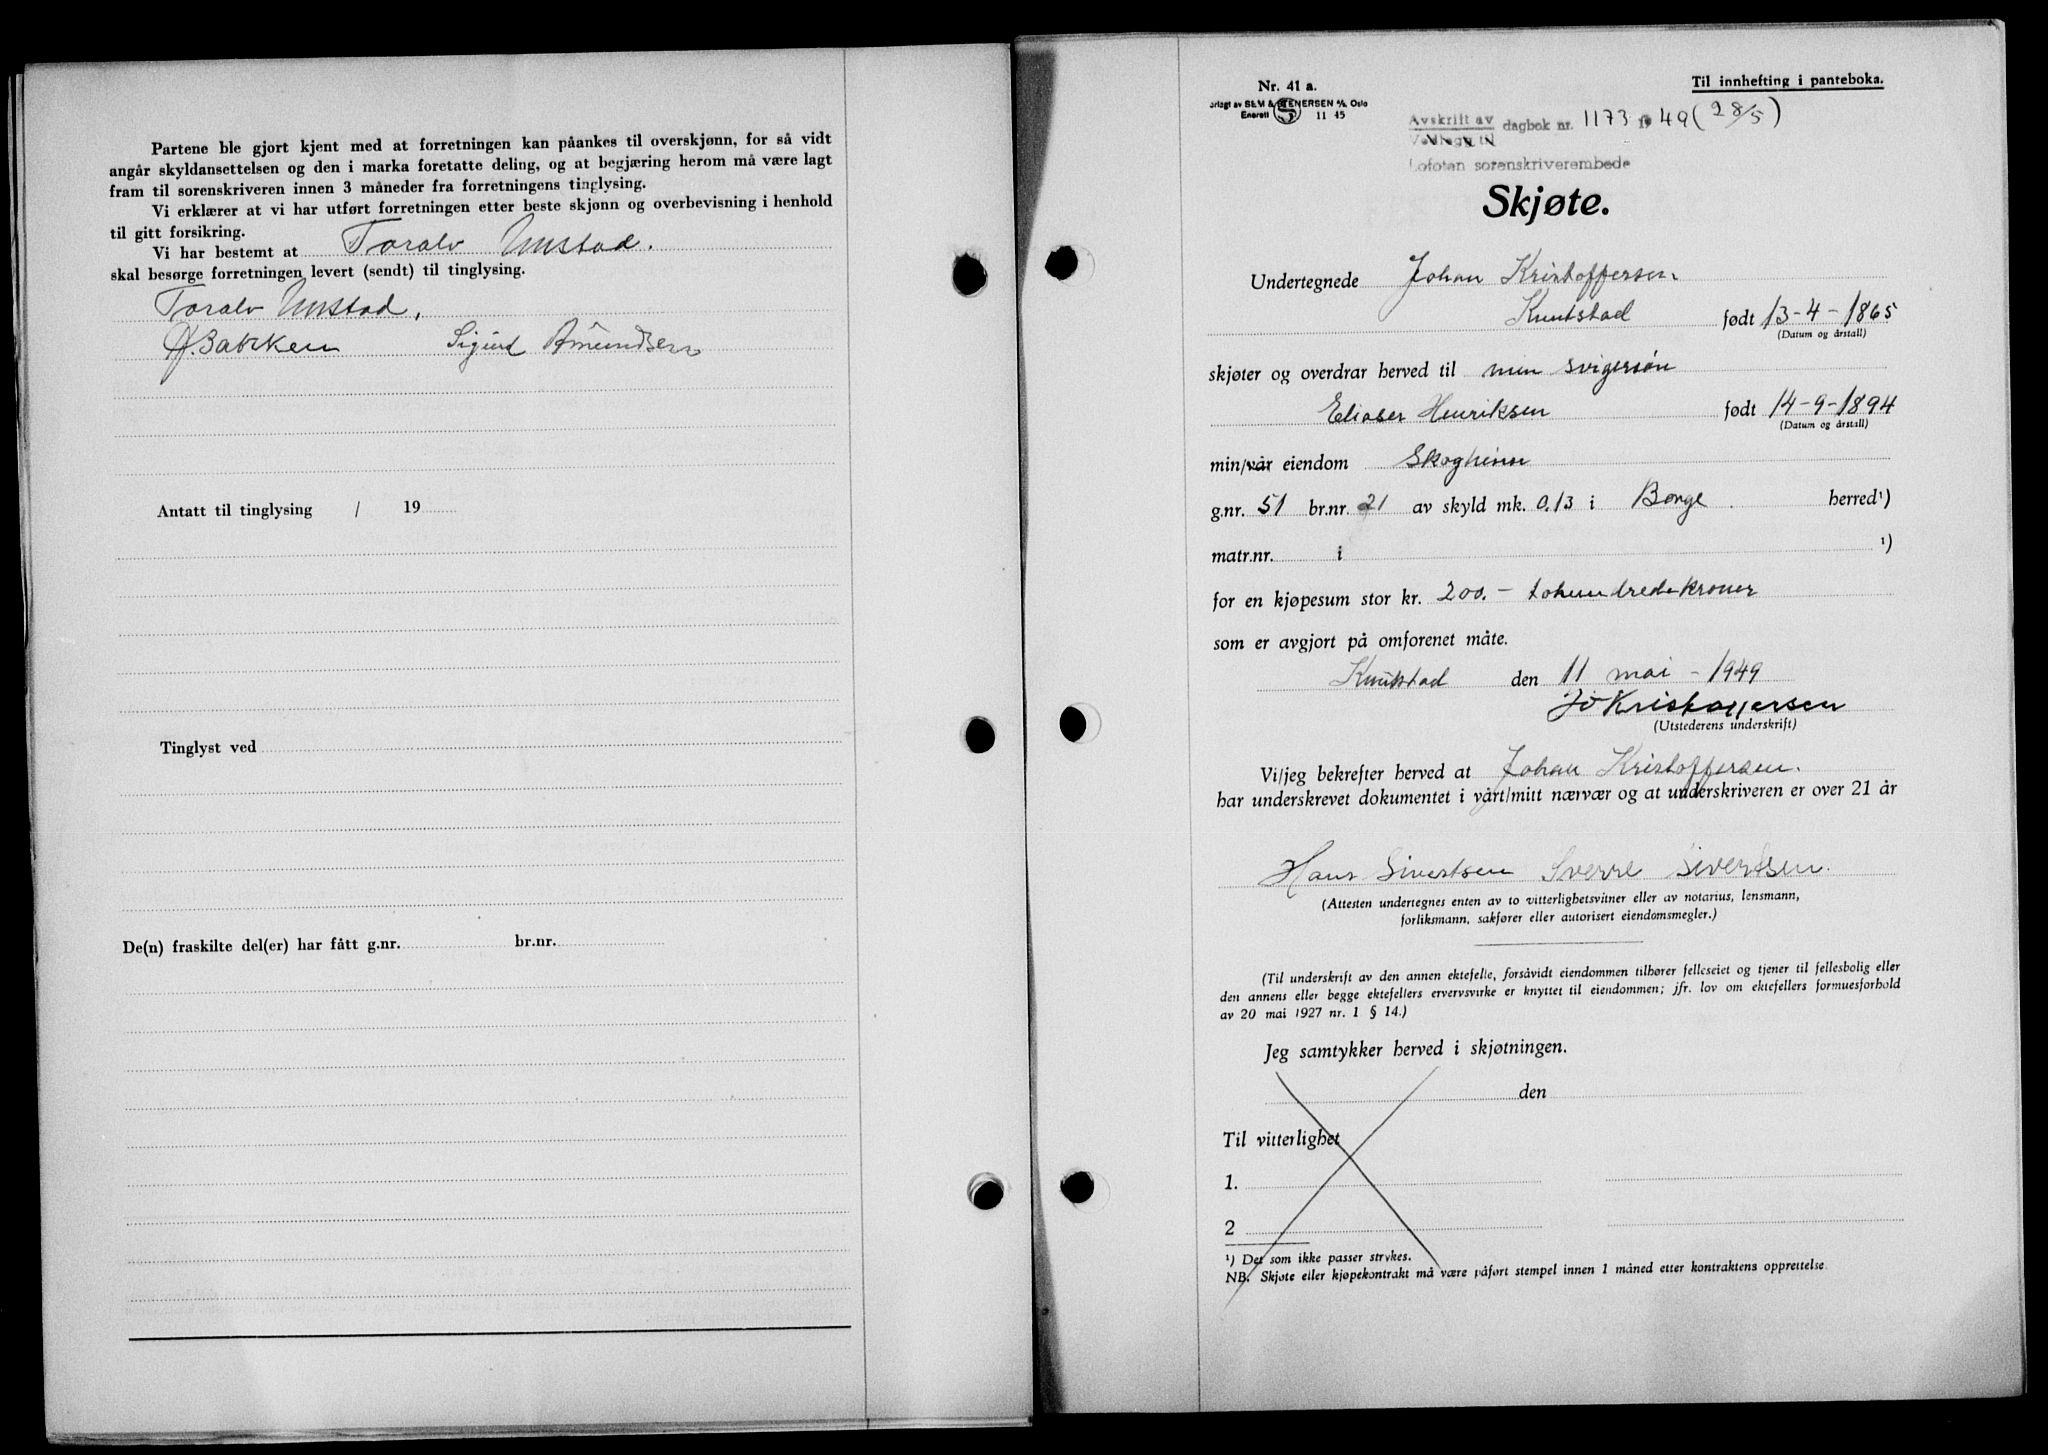 Partene ble gjort kjent med at forretningen kan påankes til overskjønn, for så vidt
angår skyldansettelsen og den i marka foretatte deling, og at begjæring herom må være lagt
fram til sorenskriveren innen 3 måneder fra forretningens tinglysing.
Vi erklærer at vi har utført forretningen etter beste skjønn og overbevisning i henhold
til gitt forsikring.
Vi har bestemt at Toralv Unstad.
skal besørge forretningen levert (sendt) til tinglysing.
Toralv Unstad.
Sigurd Amundsen
Antatt til tinglysing / 19
Tinglyst ved
De(n) fraskilte del(er) har fått g.nr. br.nr.
Nr. 41 a.
Til innhefting i panteboka.
orlagt av SEM & STENERSEN A/S, Oslo
Enerett S 11 45
Avskrift av dagbok nr. 1173 1949 (28/5)
Lofoten sorenskriverembede
Skjøte.
Undertegnede Johan Kristoffersen
Knutstad født 13-4-1865
(Datum og årstall)
skjøter og overdrar herved til min svigersøn
Eliaser Henriksen født 14-9-1894
(Datum og årstall)
min/vår eiendom Skogheim
g.nr. 51 br.nr. 21 av skyld mk. 0.13 i Borge herred¹)
matr.nr. i ¹)
for en kjøpesum stor kr. 200.- tohundredekroner
som er avgjort på omforenet måte.
Knutstad den 11 mai - 1949
Jo Kristoffersen
(Utstederens underskrift)
Vi/jeg bekrefter herved at Johan Kristoffersen.
har underskrevet dokumentet i vårt/mitt nærvær og at underskriveren er over 21 år
Hans Sivertsen Sverre Sivertsen.
(Attesten undertegnes enten av to vitterlighetsvitner eller av notarius, lensmann,
forliksmann, sakfører eller autorisert eiendomsmegler.)
(Til underskrift av den annen ektefelle, forsåvidt eiendommen tilhører felleseiet og tjener til fellesbolig eller
den annens eller begge ektefellers ervervsvirke er knyttet til eiendommen; jfr. lov om ektefellers formuesforhold
av 20 mai 1927 nr. 1 § 14.)
Jeg samtykker herved i skjøtningen.
den
Til vitterlighet
1.
2
¹) Det som ikke passer strykes.
NB. Skjøte eller kjøpekontrakt må være påført stempel innen 1 måned etter kontraktens opprettelse